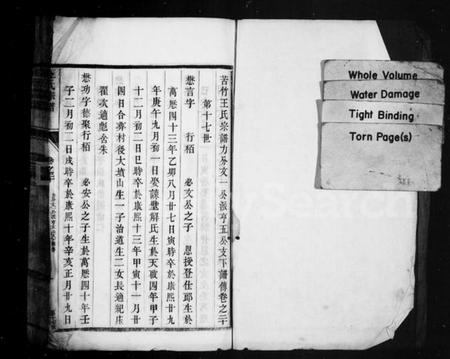 苦竹王氏宗譜力公支一公派亨五公支下譜傳卷之三十
第十七世
懋言字 行栢 必文公之子 恩授登仕郎生於
萬曆四十三年乙卯八月廿七日寅時卒於康熙廿九
年庚午九月初一日娶諱璧解氏生於天啟四年甲子
十二月初二日巳時卒於康熙十三年甲寅十一月廿
四日合葬村後大墳山生一子治道生二女長適紀庄
翟次適彪岙朱
懋功字德聚行栢 必安公之子生於萬曆四十年壬
子二月初二日戌時卒於康熙十年辛亥正月廿九日
Whole Volume
Water Damage
Tight Binding
Torn Page(s)